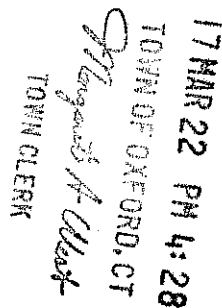 17 MAR 22 PM 4:28
TOWN OF OXFORD, CT
Margaret A West
TOWN CLERK